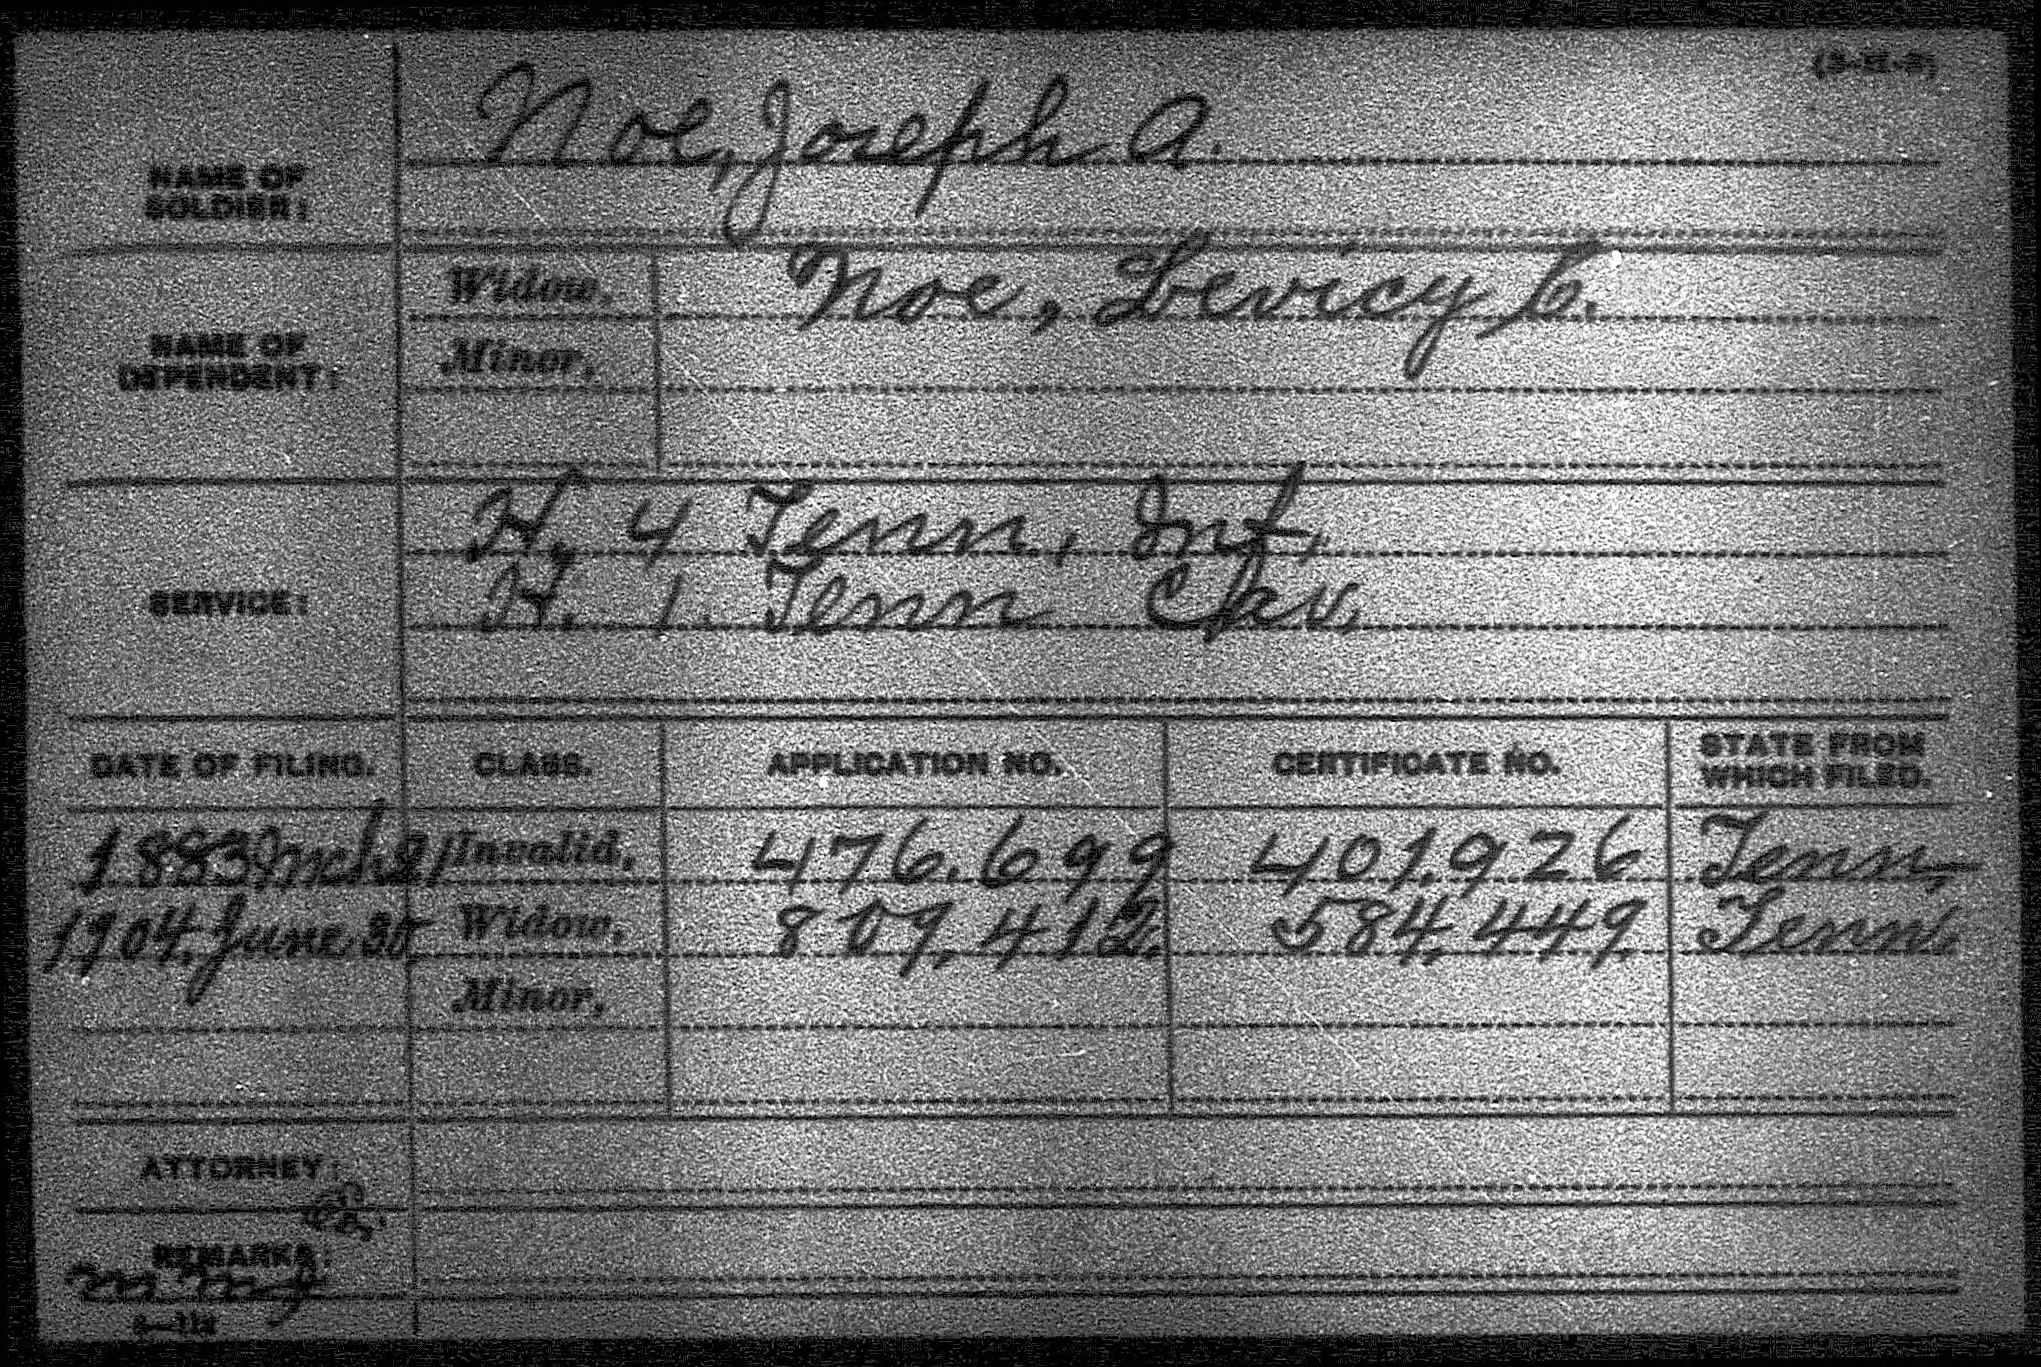 Noe, Joseph A.
NAME OF
SOLDIER:
Widow, Noe, Levicy C.
NAME OF
DEPENDENT:
Minor,
H, 4 Tenn, Inf,
SERVICE:
H. 1. Tenn Cav,
DATE OF FILING. CLASS. APPLICATION NO. CERTIFICATE NO. STATE FROM
WHICH FILED.
1883 Mch 21 Invalid, 476.699 401,926 Tenn,
1904, June 30 Widow, 809,412. 584,449 Tenn.
Minor,
ATTORNEY:
REMARKS: